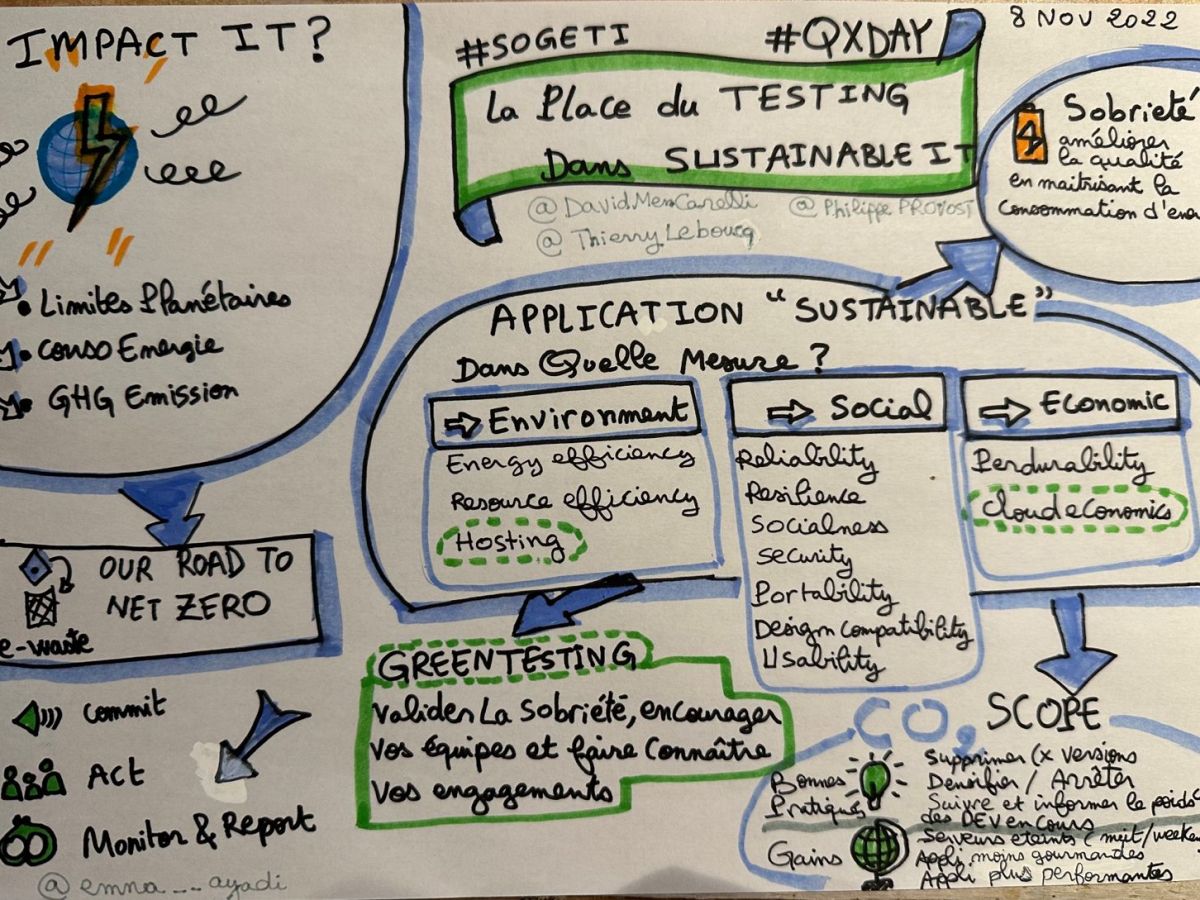 IMPACT IT?
• Limites Planétaires
• conso Energie
• GHG Emission
OUR ROAD TO
NET ZERO
e-waste
commit
Act
Monitor & Report
@emna__ayadi
#SOGETI #QXDAY
8 NOV 2022
La Place du TESTING
Dans SUSTAINABLE IT
@DavidMencarelli @PhilippePROVOST
@ThierryLeboucq
Sobrieté
améliorer
la qualité
en maitrisant la
consommation d'ener
APPLICATION "SUSTAINABLE"
Dans Quelle Mesure ?
Environment
Energy efficiency
Resource efficiency
Hosting
Social
Reliability
Resilience
Socialness
Security
Portability
Design compatibility
Usability
Economic
Perdurability
Cloud economics
GREENTESTING
valider La Sobriété, encourager
vos équipes et faire connaître
vos engagements
CO2 SCOPE
Bonnes
Pratiques
Supprimer (x versions
Densifier / Arrêter
Suivre et informer le poids
des DEV en cours
Gains
Serveurs eteints (nuit/weeke
Appli moins gourmandes
Appli plus performantes